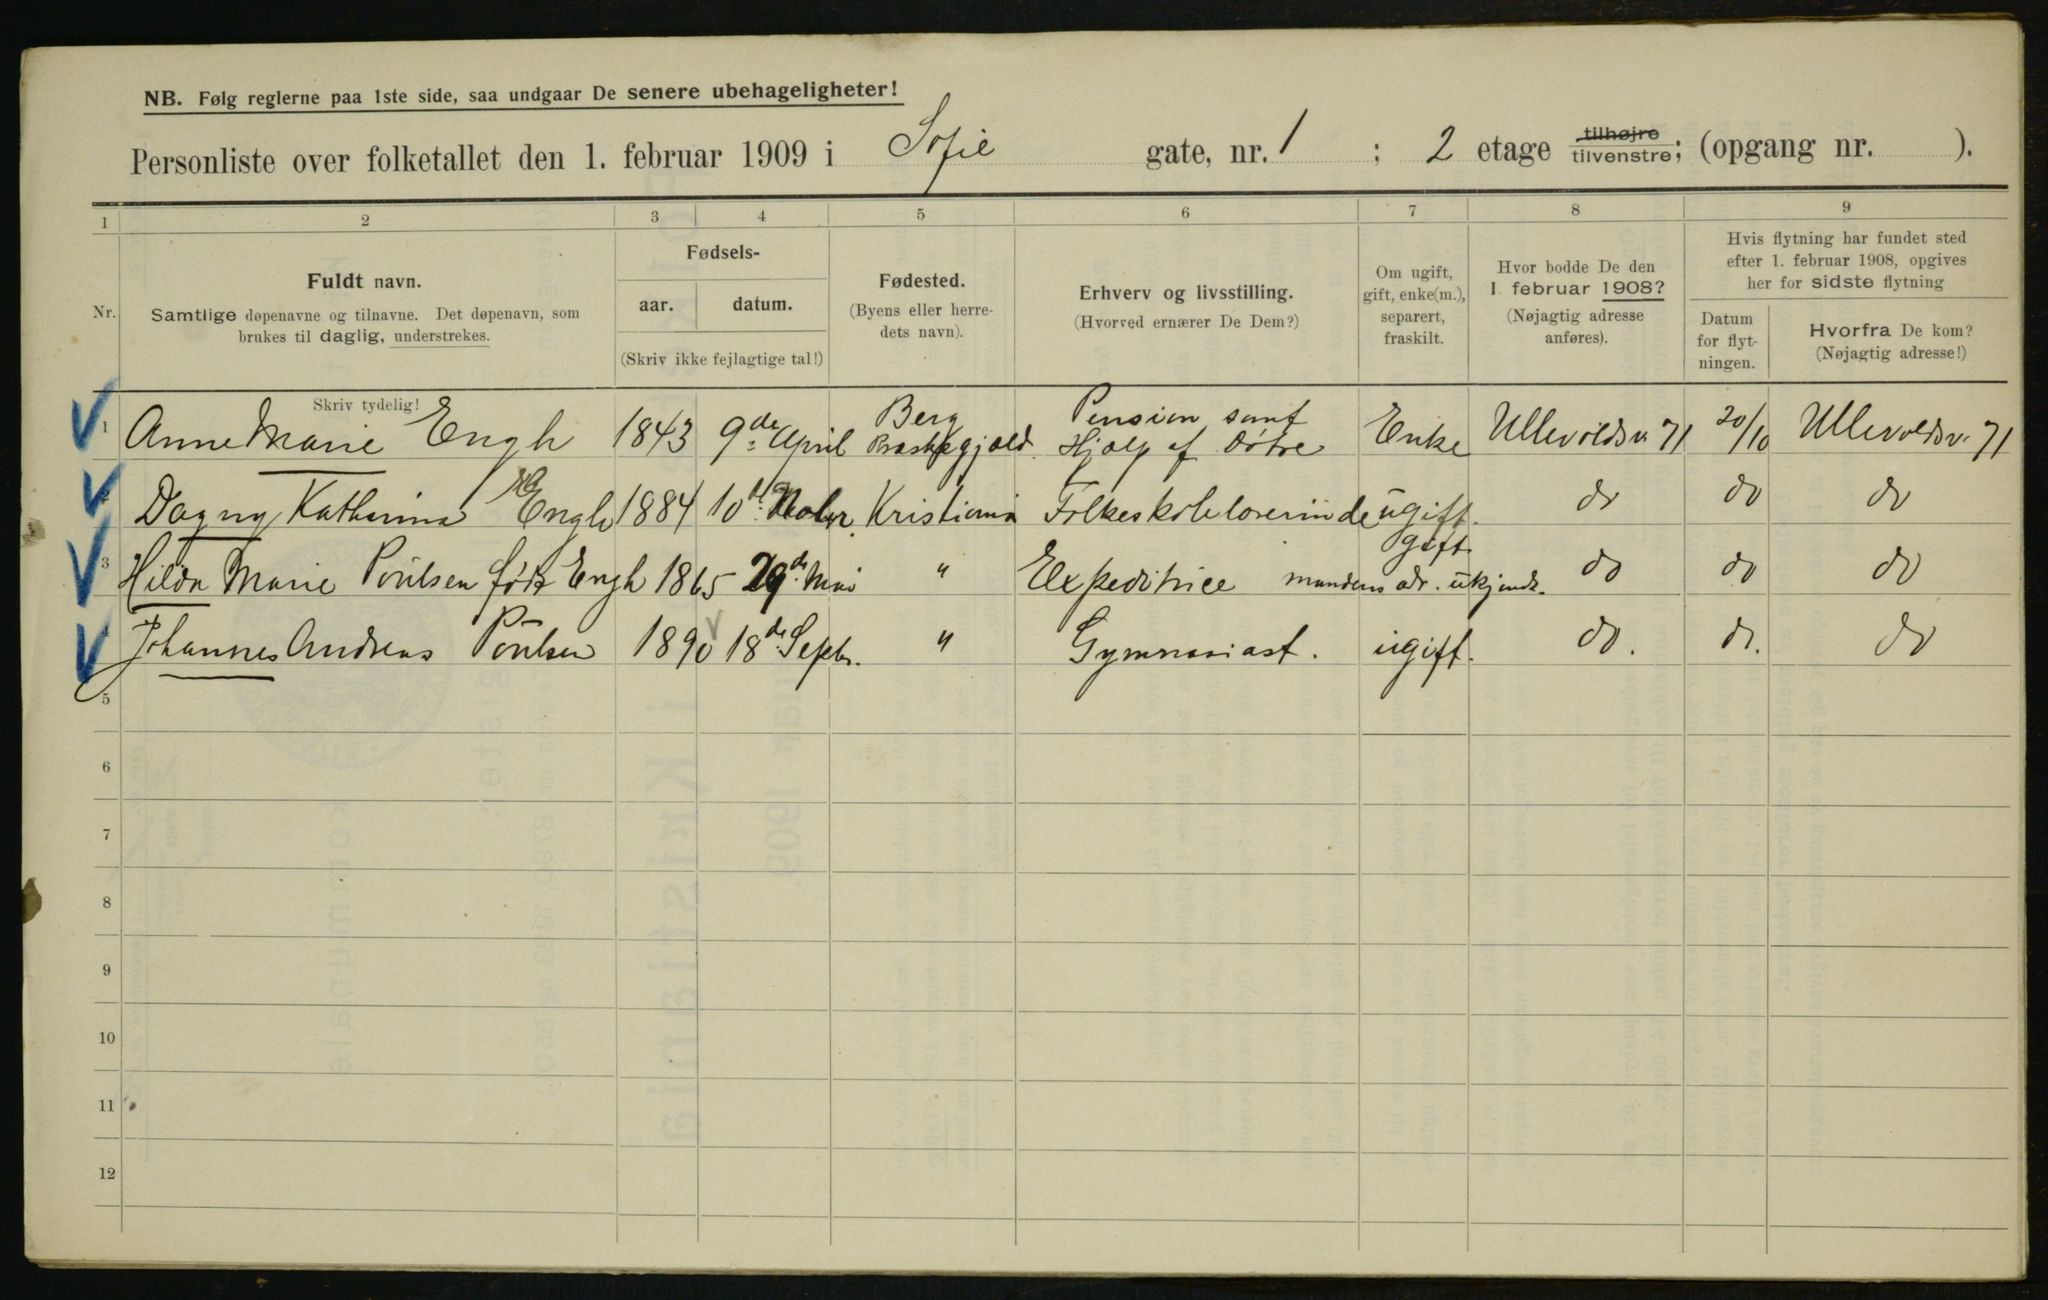 NB. Følg reglerne paa 1ste side, saa undgaar De senere ubehageligheter!
Personliste over folketallet den 1. februar 1909 i Sofie gate, nr. 1 ; 2 etage tilhøjre tilvenstre; (opgang nr. ).
1 2 3 4 5 6 7 8 9
Nr.
Fuldt navn.
Samtlige døpenavne og tilnavne. Det døpenavn, som
brukes til daglig, understrekes.
Skriv tydelig!
Fødsels-
aar. datum.
(Skriv ikke fejlagtige tal!)
Fødested.
(Byens eller herre-
dets navn).
Erhverv og livsstilling.
(Hvorved ernærer De Dem?)
Om ugift,
gift, enke(m.),
separert,
fraskilt.
Hvor bodde De den
1. februar 1908?
(Nøjagtig adresse
anføres).
Hvis flytning har fundet sted
efter 1. februar 1908, opgives
her for sidste flytning
Datum
for flyt-
ningen.
Hvorfra De kom?
(Nøjagtig adresse!)
1 Anne Marie Engh 1843 9de April Berg Præstegjæld Pension samt Hjælp af Døtre Enke Ullevoldsv. 71 20/10 Ullevoldsv. 71
2 Dagny Katharina Engh 1884 10de Kristiania Folkeskolelærerinde ugift. do do do
3 Hilda Marie Poulsen født Engh 1865 29de Mai " Expeditrice gift. mandens adr. ukjendt. do do do
4 Johannes Andreas Poulsen 1890 18de Septbr. " Gymnasiast. ugift. do. do. do
5
6
7
8
9
10
11
12